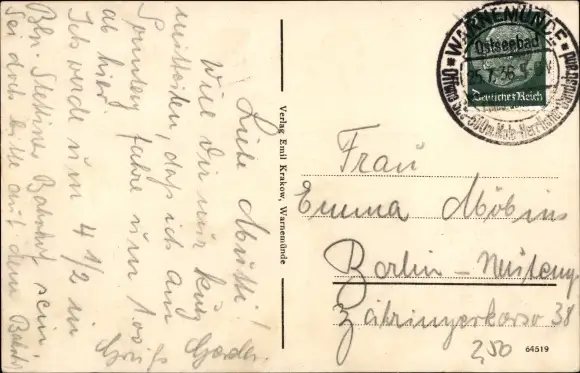 Liebe Mutti!
Will Dir nur kurz
mitteilen, daß ich am
Sonntag fahre um 1.00
ab hier.
Ich werde um 4 1/2 in
Bln. Stettiner Bahnhof sein.
Sei doch bitte auf dem Bahnh.
Verlag Emil Krakow, Warnemünde
WARNEMÜNDE
Ostseebad
.7.36
Deutsches Reich
Frau
Emma Möbius
Berlin - Neutemp
Zähringerkorso 38
2,50
64519